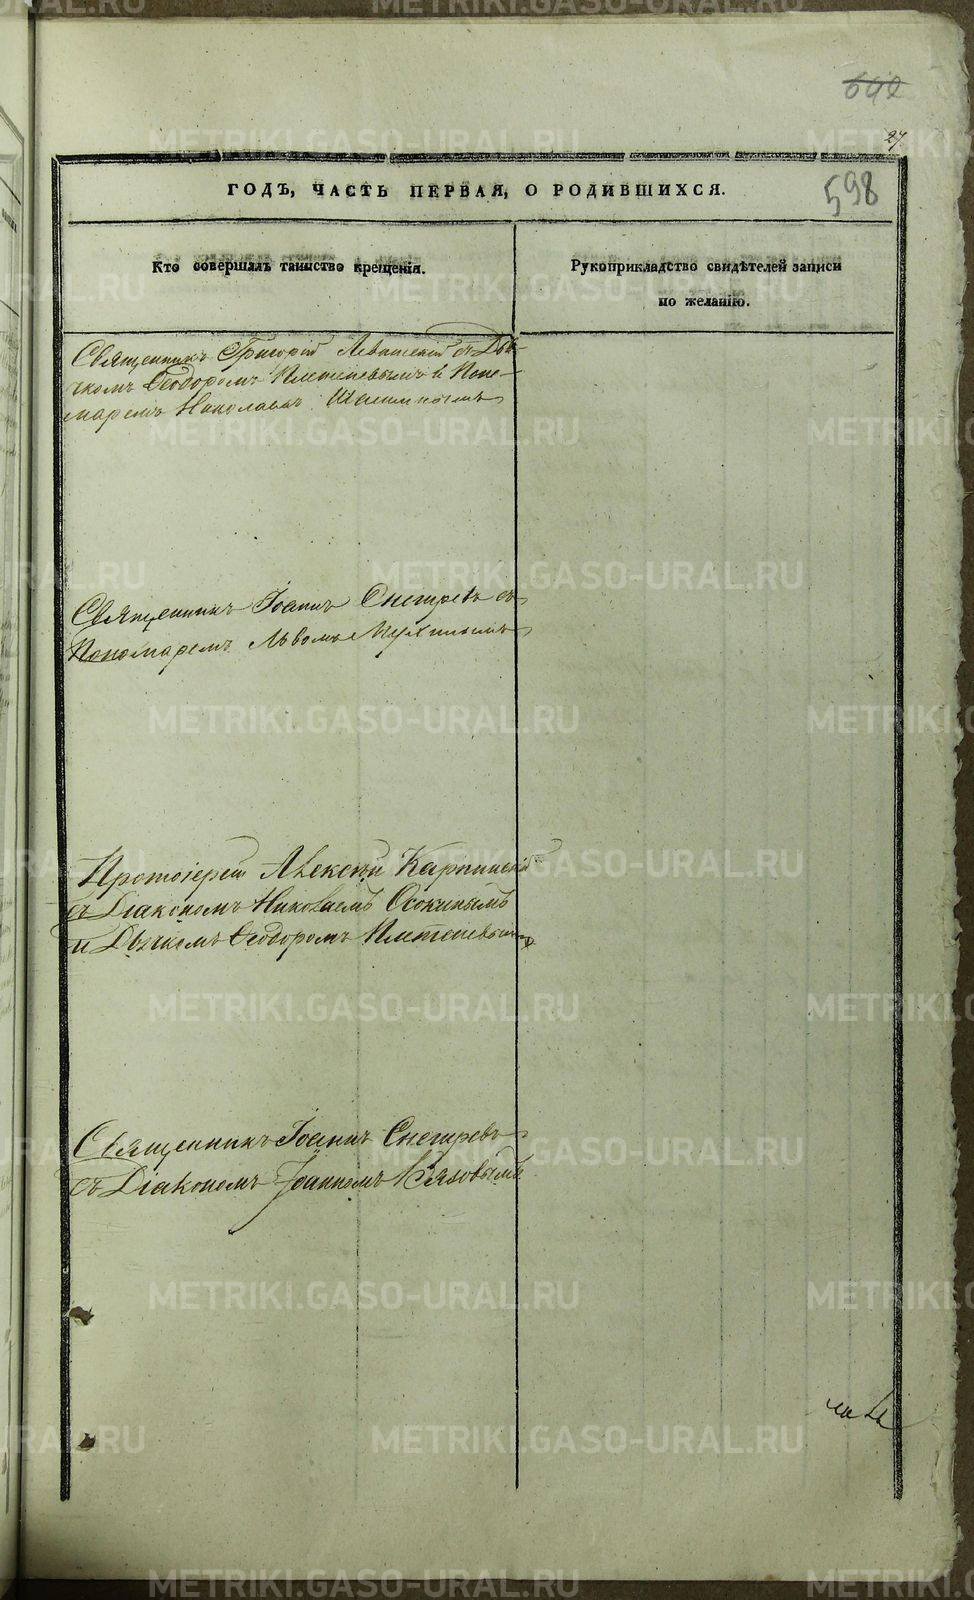 642
27
ГОДЪ, ЧАСТЬ ПЕРВАЯ, О РОДИВШИХСЯ.
598
Кто совершалъ таинство крещенія.
Рукоприкладство свидѣтелей записи
по желанію.
Священникъ Григорій съ Дья-
чкомъ Ѳеодоромъ Плетеневымъ и Поно-
маремъ Николаемъ
Священникъ Іоаннъ Снегиревъ съ
Пономаремъ Львомъ Мухинымъ
Протоіерей Алексѣй Карпинскій
съ Діакономъ Николаемъ Осокинымъ
и Дьячкомъ Ѳеодоромъ Плетеневымъ
Священникъ Іоаннъ Снегиревъ
съ Діакономъ Іоанномъ
METRIKI.GASO-URAL.RU